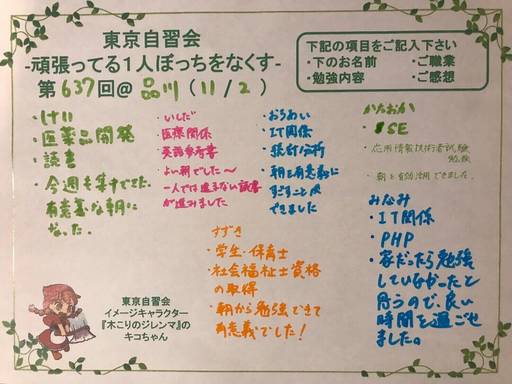 東京自習会
-頑張ってる1人ぼっちをなくす-
第637回@ 品川 (11/2)
下記の項目をご記入下さい
・下のお名前 ・ご職業
・勉強内容 ・ご感想
・けい
・医薬品開発
・読書
・今週も集中できた。
有意義な朝に
なった。
・いしだ
・医療関係
・英語参考書
・よい朝でした〜
・一人では進まない読書
が進みました
・おろわい
・IT関係
・統計分析
・朝を有意義に
すごすことが
できました
かたおか
・SE
・応用情報技術者試験
勉強
・朝を有効活用できました。
すずき
・学生・保育士
・社会福祉士資格
の取得
・朝から勉強できて
有意義でした!
みなみ
・IT関係
・PHP
・家だったら勉強
していなかったと
思うので、良い
時間を過ごせ
ました。
東京自習会
イメージキャラクター
『木こりのジレンマ』の
キコちゃん